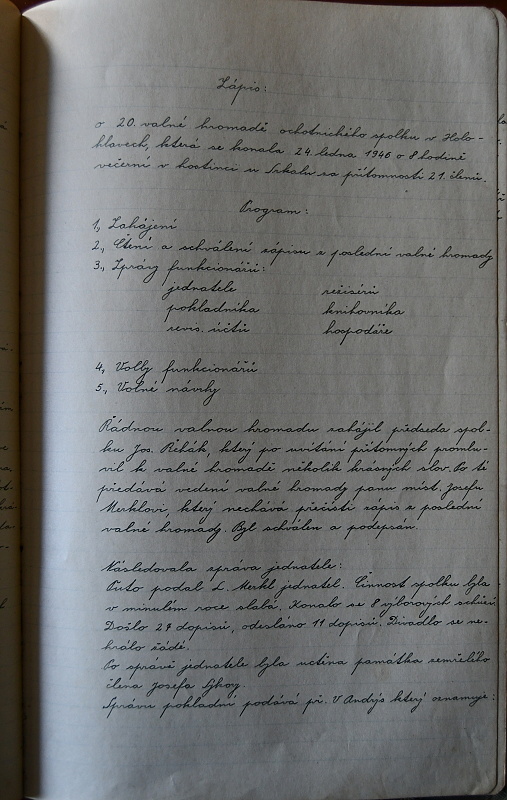 Zápis:
o 20. valné hromadě ochotnického spolku v Holo-
hlavech, která se konala 24. ledna 1946 o 8 hodině
večerní v hostinci u Srkalu za přítomnosti 21. členů.
Program:
1, Zahájení
2., Čtení a schválení zápisu z poslední valné hromady
3., Zprávy funkcionářů:
jednatele režisérů
pokladníka knihovníka
revis. účtů hospodáře
4, Volby funkcionářů
5., Volné návrhy
Řádnou valnou hromadu zahájil předseda spol-
ku Jos. Řehák, který po uvítání přítomných promlu-
vil k valné hromadě několik krásných slov. Po té
předává vedení valné hromady panu míst. Josefu
Merklovi, který nechává přečísti zápis z poslední
valné hromady. Byl schválen a podepsán.
Následovala zpráva jednatele:
Tuto podal L. Merkl jednatel. Činnost spolku byla
v minulém roce slabá. Konalo se 8 výborových schůzí
Došlo 27 dopisů, odesláno 11 dopisů. Divadlo se ne-
hrálo žádé.
Po zprávě jednatele byla uctěna památka zemřelého
člena Josefa Sýkory.
Zprávu pokladní podává př. V Andrýs který oznamuje: